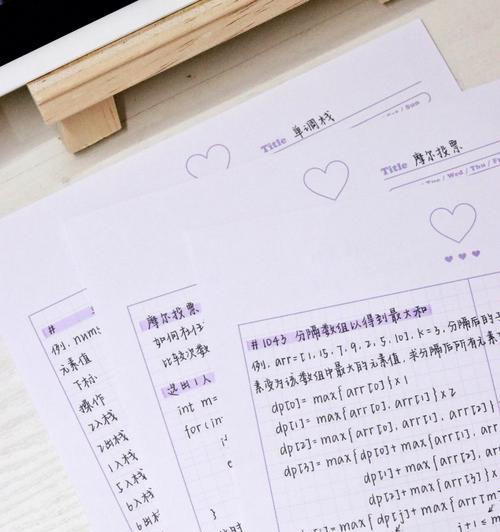 Title 单调栈
/ Sun
Title 摩尔投票
Tue / Wed / Thu / Fr
#
例. nums
元素值
下标
操作
2入栈
2出栈
1入栈
5入栈
6入栈
6出栈
摩尔投票
如何在任
比较次数
选出1人
int m=
for(in
#1043 分隔数组以得到最大和
例. arr=[1,15,7,9,2,5,10], k=3, 分隔后的
素变为该数组中最大的元素值. 求分隔后所有元素
dp[0]= max{arr[0]}×1
dp[1]= max{arr[0], arr[1]}×2
dp[2]= max{arr[0], arr[1], arr[2]}
dp[3]= max{dp[0]+max{arr[1], arr
dp[1]+max{arr[2], ar
dp[2]+max{arr[3]}×
dp[i]=max{dp[j]+max{arr